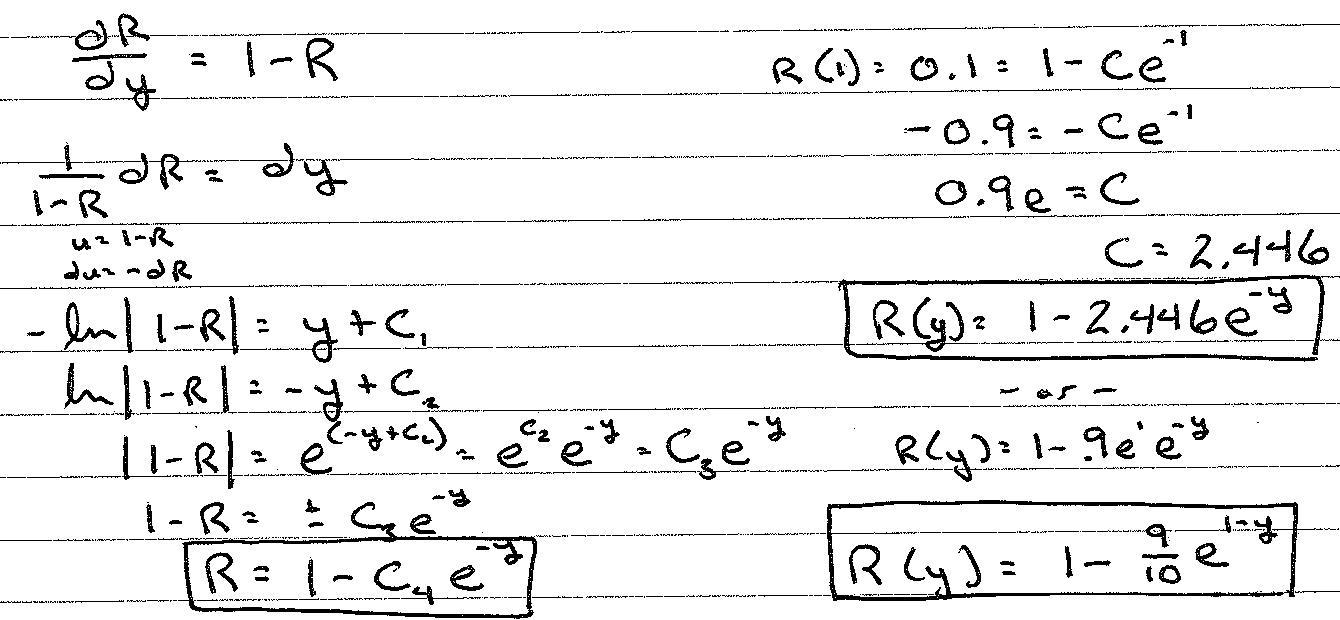 dR/dy = 1-R
1/(1-R) dR = dy
u = 1-R
du = -dR
-ln|1-R| = y + C₁
ln|1-R| = -y + C₂
|1-R| = e^(-y+C₂) = e^C₂ e^-y = C₃e^-y
1-R = ± C₃e^-y
R = 1 - C₄e^-y
R(1) = 0.1 = 1 - Ce^-1
-0.9 = -Ce^-1
0.9e = C
C = 2.446
R(y) = 1 - 2.446e^-y
- or -
R(y) = 1 - .9e^1 e^-y
R(y) = 1 - 9/10 e^1-y